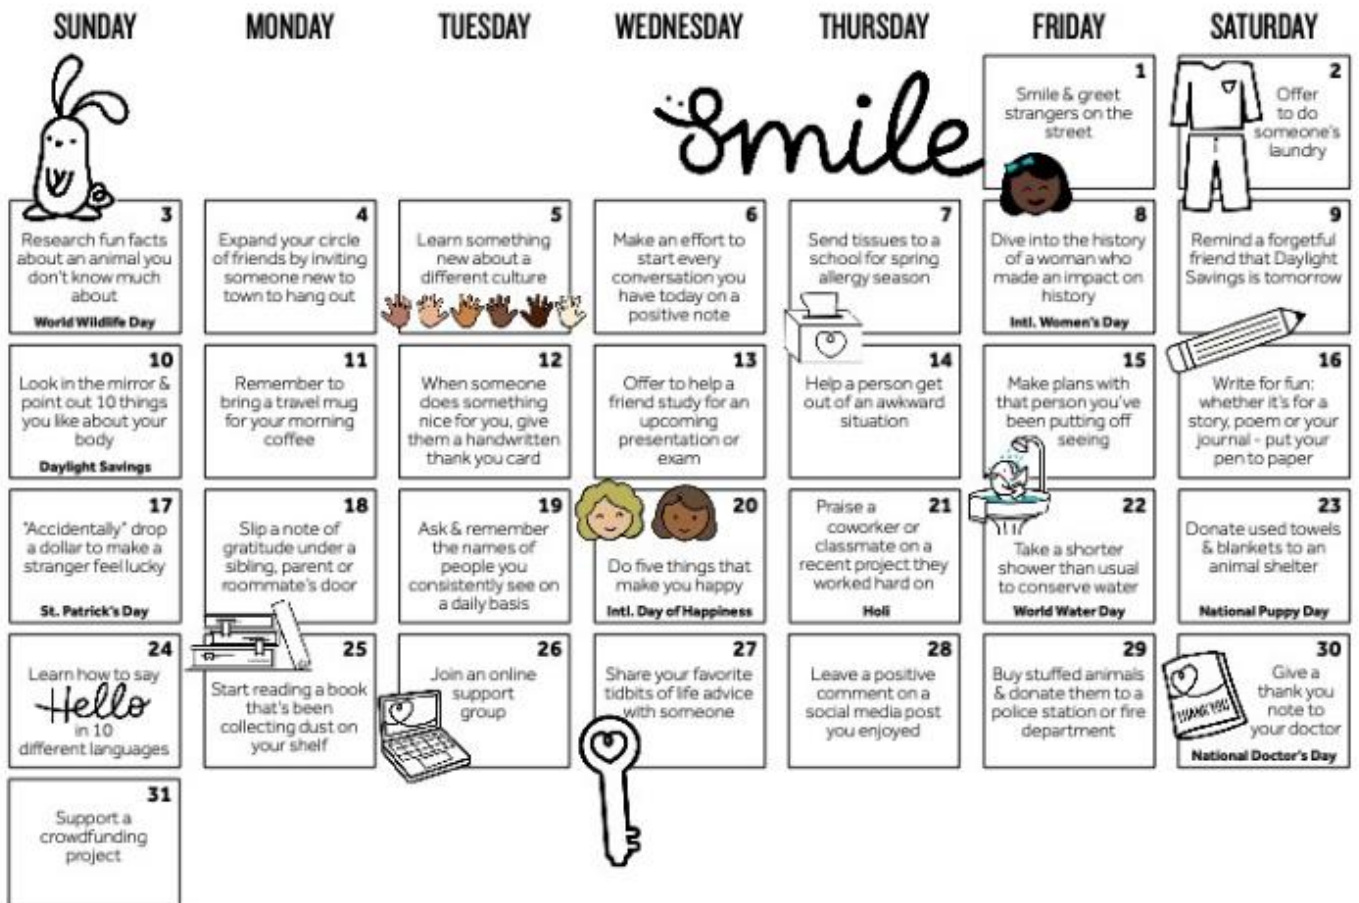 SUNDAY MONDAY TUESDAY WEDNESDAY THURSDAY FRIDAY SATURDAY
smile
1
Smile & greet
strangers on the
street
2
Offer
to do
someone's
laundry
3
Research fun facts
about an animal you
don't know much
about
World Wildlife Day
4
Expand your circle
of friends by inviting
someone new to
town to hang out
5
Learn something
new about a
different culture
6
Make an effort to
start every
conversation you
have today on a
positive note
7
Send tissues to a
school for spring
allergy season
8
Dive into the history
of a woman who
made an impact on
history
Intl. Women's Day
9
Remind a forgetful
friend that Daylight
Savings is tomorrow
10
Look in the mirror &
point out 10 things
you like about your
body
Daylight Savings
11
Remember to
bring a travel mug
for your morning
coffee
12
When someone
does something
nice for you, give
them a handwritten
thank you card
13
Offer to help a
friend study for an
upcoming
presentation or
exam
14
Help a person get
out of an awkward
situation
15
Make plans with
that person you've
been putting off
seeing
16
Write for fun:
whether it's for a
story, poem or your
journal - put your
pen to paper
17
"Accidentally" drop
a dollar to make a
stranger feel lucky
St. Patrick's Day
18
Slip a note of
gratitude under a
sibling, parent or
roommate's door
19
Ask & remember
the names of
people you
consistently see on
a daily basis
20
Do five things that
make you happy
Intl. Day of Happiness
21
Praise a
coworker or
classmate on a
recent project they
worked hard on
Holi
22
Take a shorter
shower than usual
to conserve water
World Water Day
23
Donate used towels
& blankets to an
animal shelter
National Puppy Day
24
Learn how to say
Hello
in 10
different languages
25
Start reading a book
that's been
collecting dust on
your shelf
26
Join an online
support
group
27
Share your favorite
tidbits of life advice
with someone
28
Leave a positive
comment on a
social media post
you enjoyed
29
Buy stuffed animals
& donate them to a
police station or fire
department
30
Give a
thank you
note to
your doctor
THANK YOU
National Doctor's Day
31
Support a
crowdfunding
project